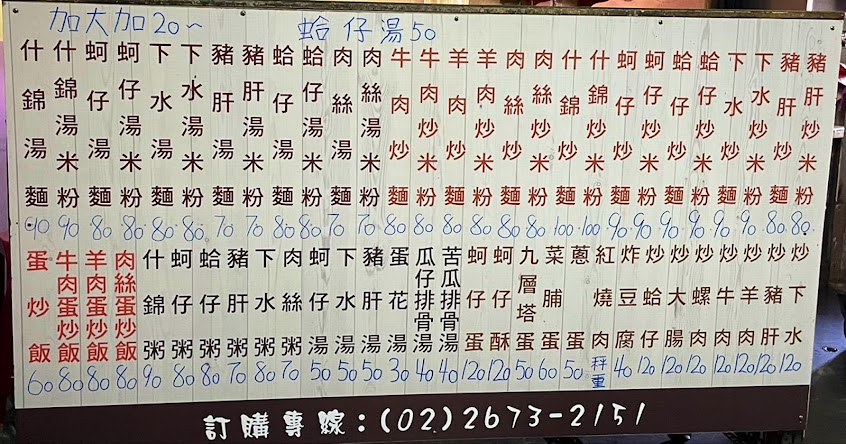 加大加20~
蛤仔湯50
什錦湯麵 90
什錦湯米粉 90
蚵仔湯麵 80
蚵仔湯米粉 80
下水湯麵 80
下水湯米粉 80
豬肝湯麵 70
豬肝湯米粉 70
蛤仔湯麵 80
蛤仔湯米粉 80
肉絲湯麵 70
肉絲湯米粉 70
牛肉炒麵 80
牛肉炒米粉 80
羊肉炒麵 80
羊肉炒米粉 80
肉絲炒麵 80
肉絲炒米粉 80
什錦炒麵 100
什錦炒米粉 100
蚵仔炒麵 90
蚵仔炒米粉 90
蛤仔炒麵 90
蛤仔炒米粉 90
下水炒麵 90
下水炒米粉 90
豬肝炒麵 80
豬肝炒米粉 80
蛋炒飯 60
牛肉蛋炒飯 80
羊肉蛋炒飯 80
肉絲蛋炒飯 80
什錦粥 90
蚵仔粥 80
蛤仔粥 80
豬肝粥 70
下水粥 80
肉絲粥 70
蚵仔湯 50
下水湯 50
豬肝湯 50
蛋花湯 30
瓜仔排骨湯 40
苦瓜排骨湯 40
蚵仔蛋 120
蚵仔酥 120
九層塔蛋 50
菜脯蛋 60
蔥蛋 50
紅燒肉 秤重
炸豆腐 40
炒蛤仔 120
炒大腸 120
炒螺肉 120
炒牛肉 120
炒羊肉 120
炒豬肝 120
炒下水 120
訂購專線:(02)2673-2151